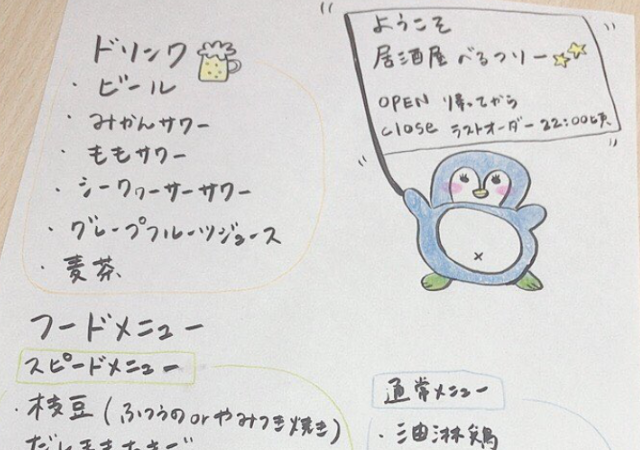 ドリンク
・ビール
・みかんサワー
・ももサワー
・シークヮーサーサワー
・グレープフルーツジュース
・麦茶
ようこそ
居酒屋 べるつリー
OPEN 帰ってから
close ラストオーダー 22:00頃
フードメニュー
スピードメニュー
・枝豆(ふつうのorやみつき焼き)
通常メニュー
・油淋鶏